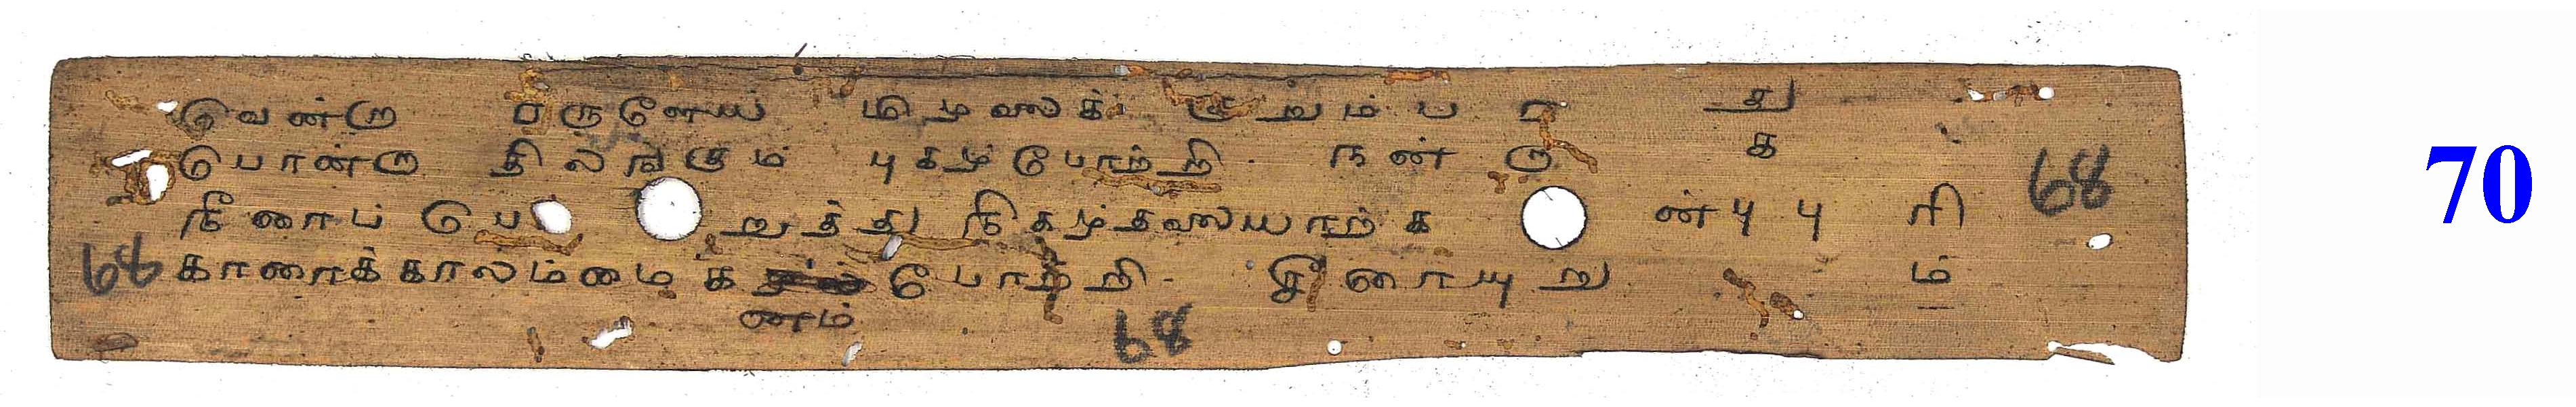 வென்ற ரருளேய மிழலைக் குறும்பர து
பொன்ற திலங்கும புகழ்போற்றி நன் று க
நீணாப் பெ றுத்து நிகழ்தலையாற்க ன்பு பு ரி
68
68 காரைக்காலம்மை க போற்றி சீரையுறு ம்
ணம்
68
70